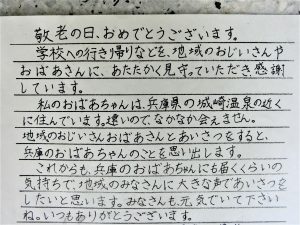 敬老の日、おめでとうございます。
学校への行き帰りなどを、地域のおじいさんや
おばあさんに、あたたかく見守っていただき感謝
しています。
私のおばあちゃんは、兵庫県の城崎温泉の近く
に住んでいます。遠いので、なかなか会えません。
地域のおじいさんおばあさんとあいさつをすると、
兵庫のおばあちゃんのことを思い出します。
これからも、兵庫のおばあちゃんにも届くくらいの
気持ちで、地域のみなさんに大きな声であいさつを
したいと思います。みなさんも、元気でいて下さい
ね。いつもありがとうございます。